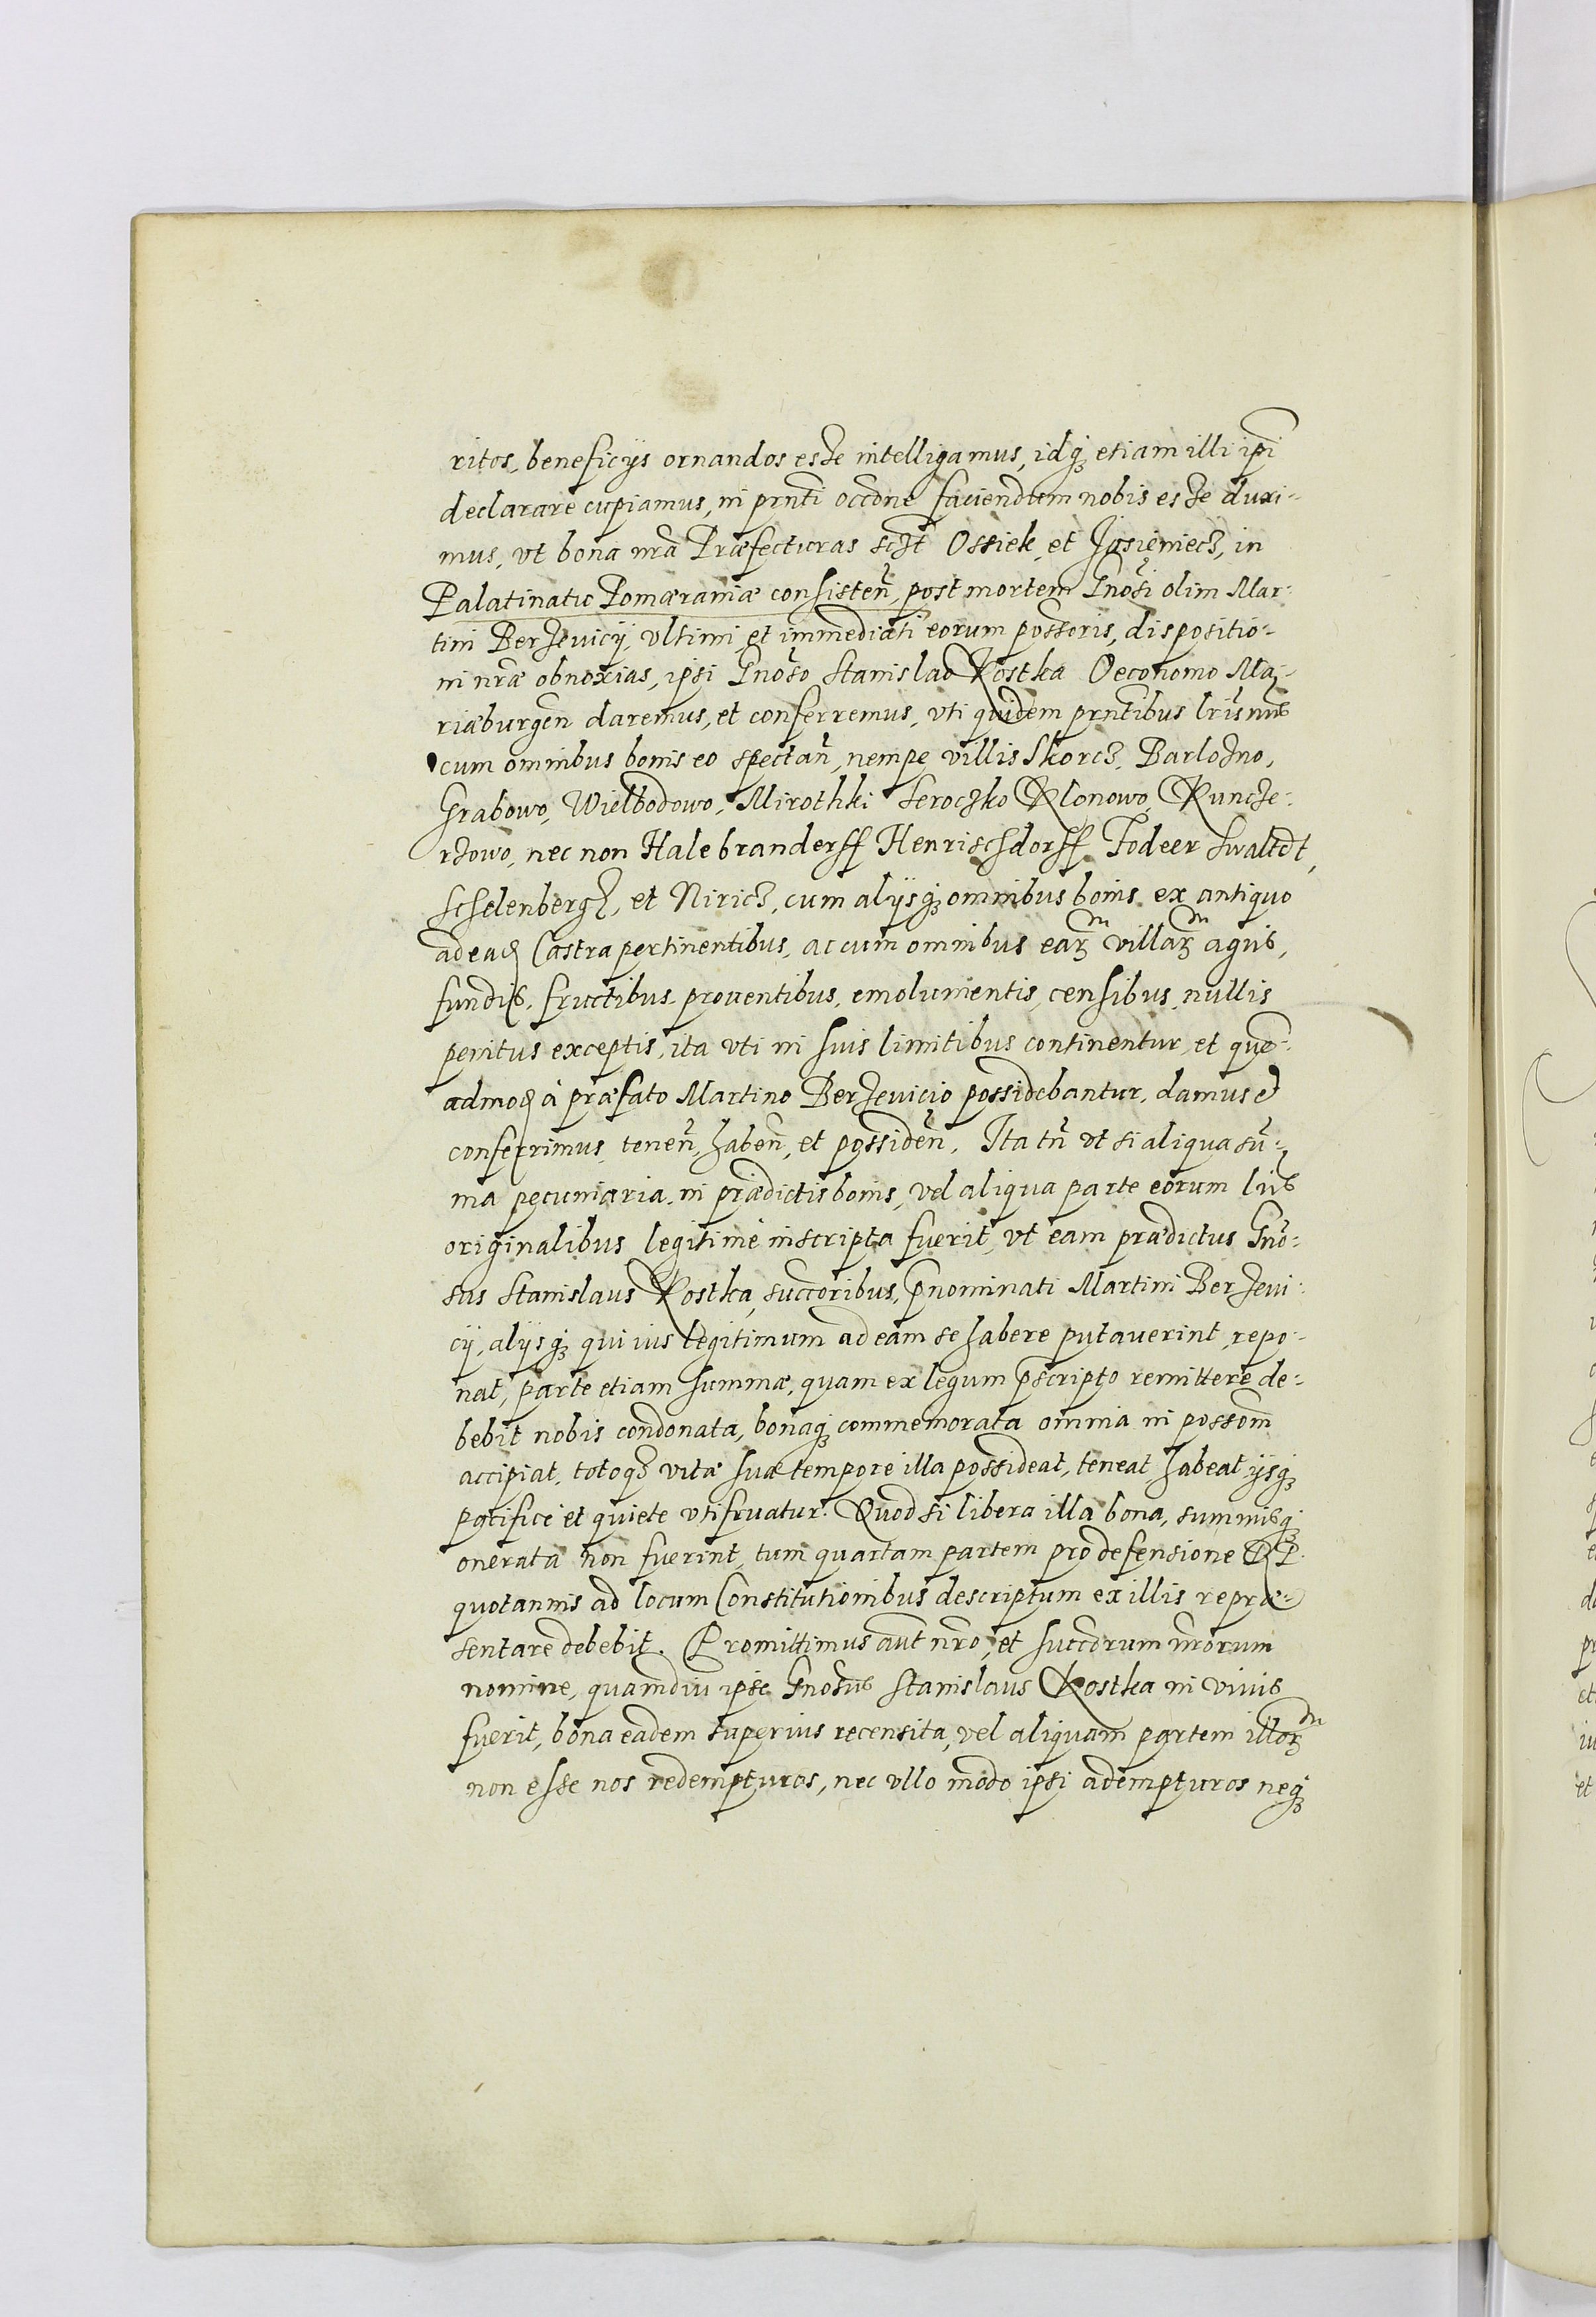 ritos, beneficijs ornandos esse intelligamus, idq; etiam illi ipi
declarare cupiamus, in prnti occone faciendum nobis esse duxi-
mus, vt bona nra Præfecturas sclt Ossiek, et Jasieniecz, in
Palatinatu Pomæraniæ consisten, post mortem Gnosi olim Mar-
tini Berzevicij, vltimi, et immediati eorum possoris, dispositio-
ni nræ obnoxias, ipsi Gnoso Stanislao Kostka Oeconomo Ma-
riæburgen daremus, et conferremus, vti quidem prntibus lris nris
cum omnibus bonis eo spectan, nempe villis Skorcz, Barlozno,
Grabowo, Wielbodowo, Mirothki Seroczko Klonowo, Kuncze-
rzowo, nec non Halebranderff Henrischdorff Todeer Swaltdt,
Schelenbergk, et Niricz, cum alijsq; omnibus bonis ex antiquo
ad ead Castra pertinentibus, ac cum omnibus earundm villarundm agris,
fundis, fructibus, prouentibus, emolumentis, censibus, nullis
penitus exceptis, ita vti in suis limitibus continentur, et que-
admod à præfato Martino Berzevicio possidebantur, damus et
conferrimus, tenen, haben, et possiden. Ita tn vt si aliqua su-
ma pecuniaria, in prædictis bonis, vel aliqua parte eorum lris
originalibus legitimè inscripta fuerit, vt eam prædictus Gno-
sus Stanislaus Kostka, succoribus, pnominati Martini Berzevi-
cij, alijsq; qui ius legitimum ad eam se habere putauerint, repo-
nat, parte etiam summæ, quam ex legum pscripto remittere de-
bebit nobis condonata, bonaq; commemorata omnia in possom
accipiat, totoq; vitæ suæ tempore illa possideat, teneat, habeat, ijsq;
pacificè et quiete vtifruatur. Quod si libera illa bona, summisq;
onerata non fuerint, tum quartam partem pro defensione RP.
quotannis ad locum Constitutionibus descriptum ex illis repræ-
sentare debebit. Promittimus aut nro, et succorum nrorum
nomine, quamdiu ipse Gnosus Stanislaus Kostka in viuis
fuerit, bona eadem superius recensita, vel aliquam partem illorundm
non esse nos redempturos, nec vllo modo ipsi adempturos neq;